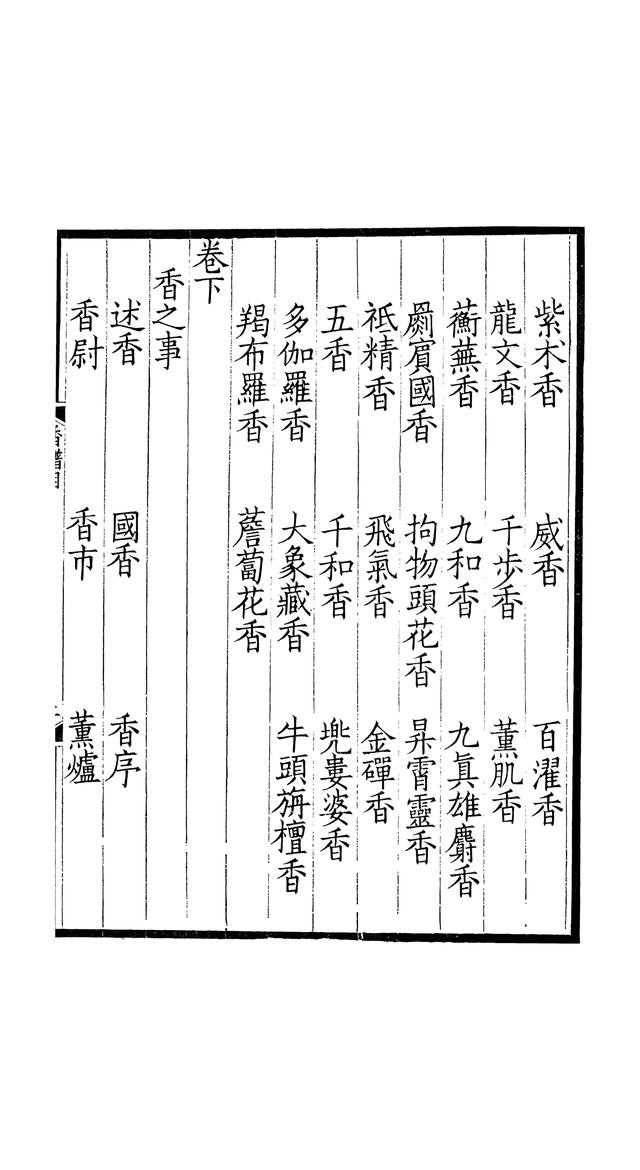 紫术香　威香　百濯香
龍文香　千步香　薰肌香
蘅蕪香　九和香　九真雄麝香
罽賓國香　拘物頭花香　昇霄靈香
祇精香　飛氣香　金磾香
五香　千和香　兜婁婆香
多伽羅香　大象藏香　牛頭旃檀香
羯布羅香　薝蔔花香
卷下
香之事
述香　國香　香序
香尉　香市　薰爐
香譜目